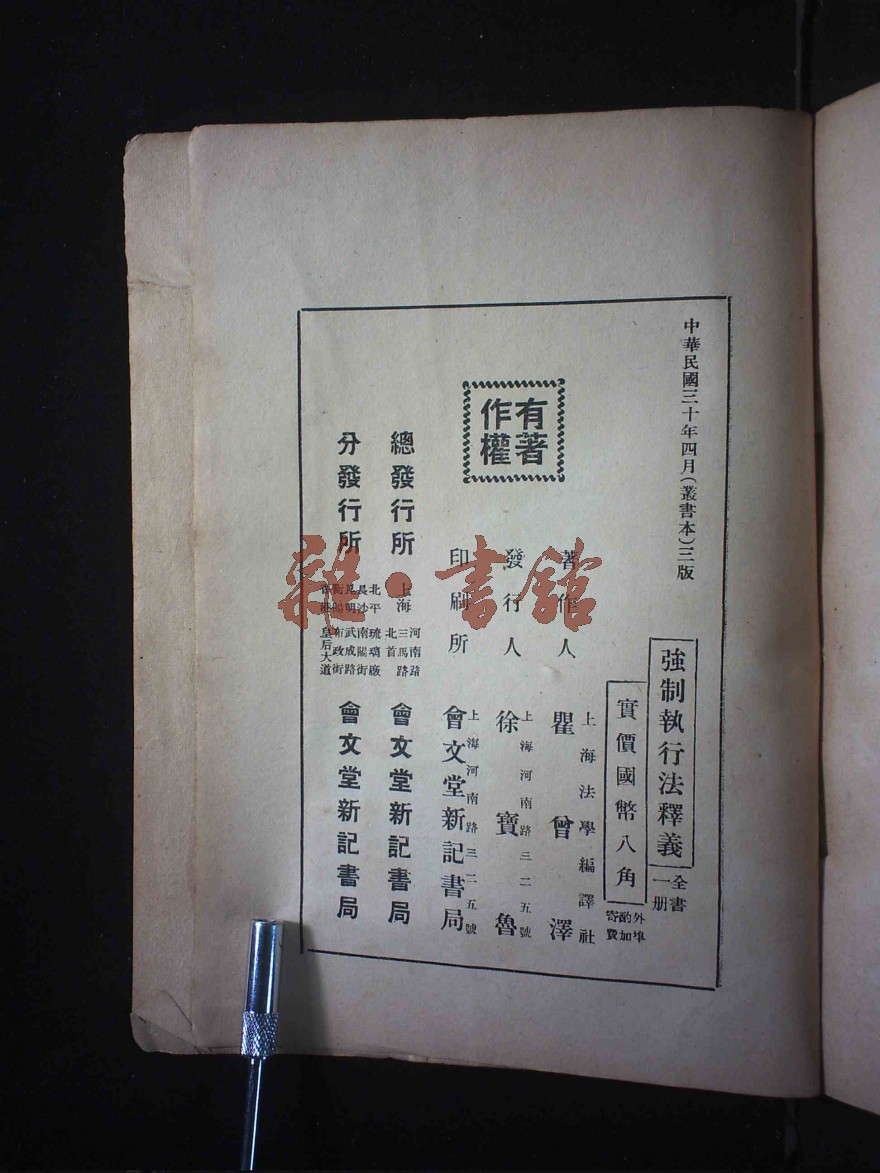 中華民國三十年四月(叢書本)三版
強制執行法釋義
全書
一册
實價國幣八角
外埠
酌加
寄費
有著
作權
著作人
上海法學編譯社
瞿曾澤
發行人
上海河南路三二五號
徐寶魯
印刷所
上海河南路三二五號
會文堂新記書局
總發行所
上海
河南路
三馬路
北首
會文堂新記書局
分發行所
北平 琉璃廠
長沙 南關街
昆明 武成路
衡陽 布政街
皇后大道
會文堂新記書局
雜·書館